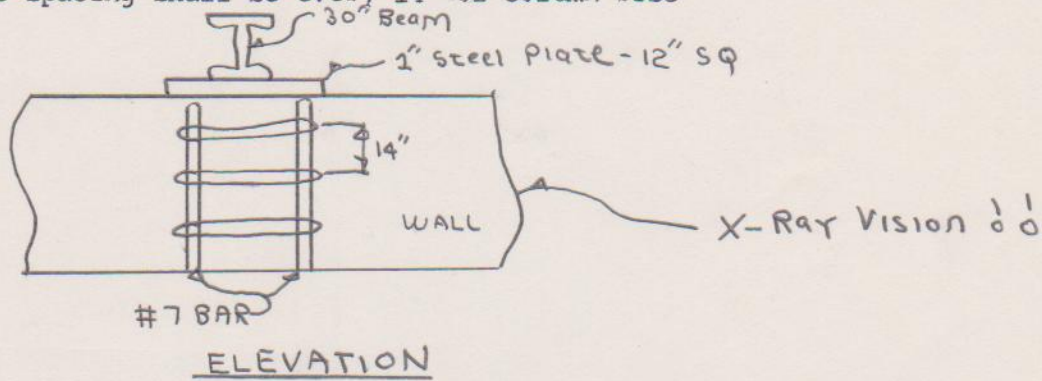 30" Beam
1" Steel Plate - 12" SQ
14"
WALL
X-Ray Vision
#7 BAR
ELEVATION